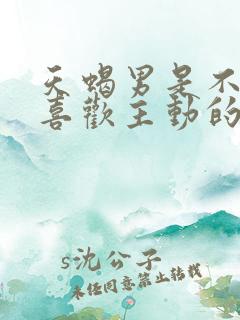 天蝎男是不
喜歡主動的
s沈公子
未经同意禁止转载